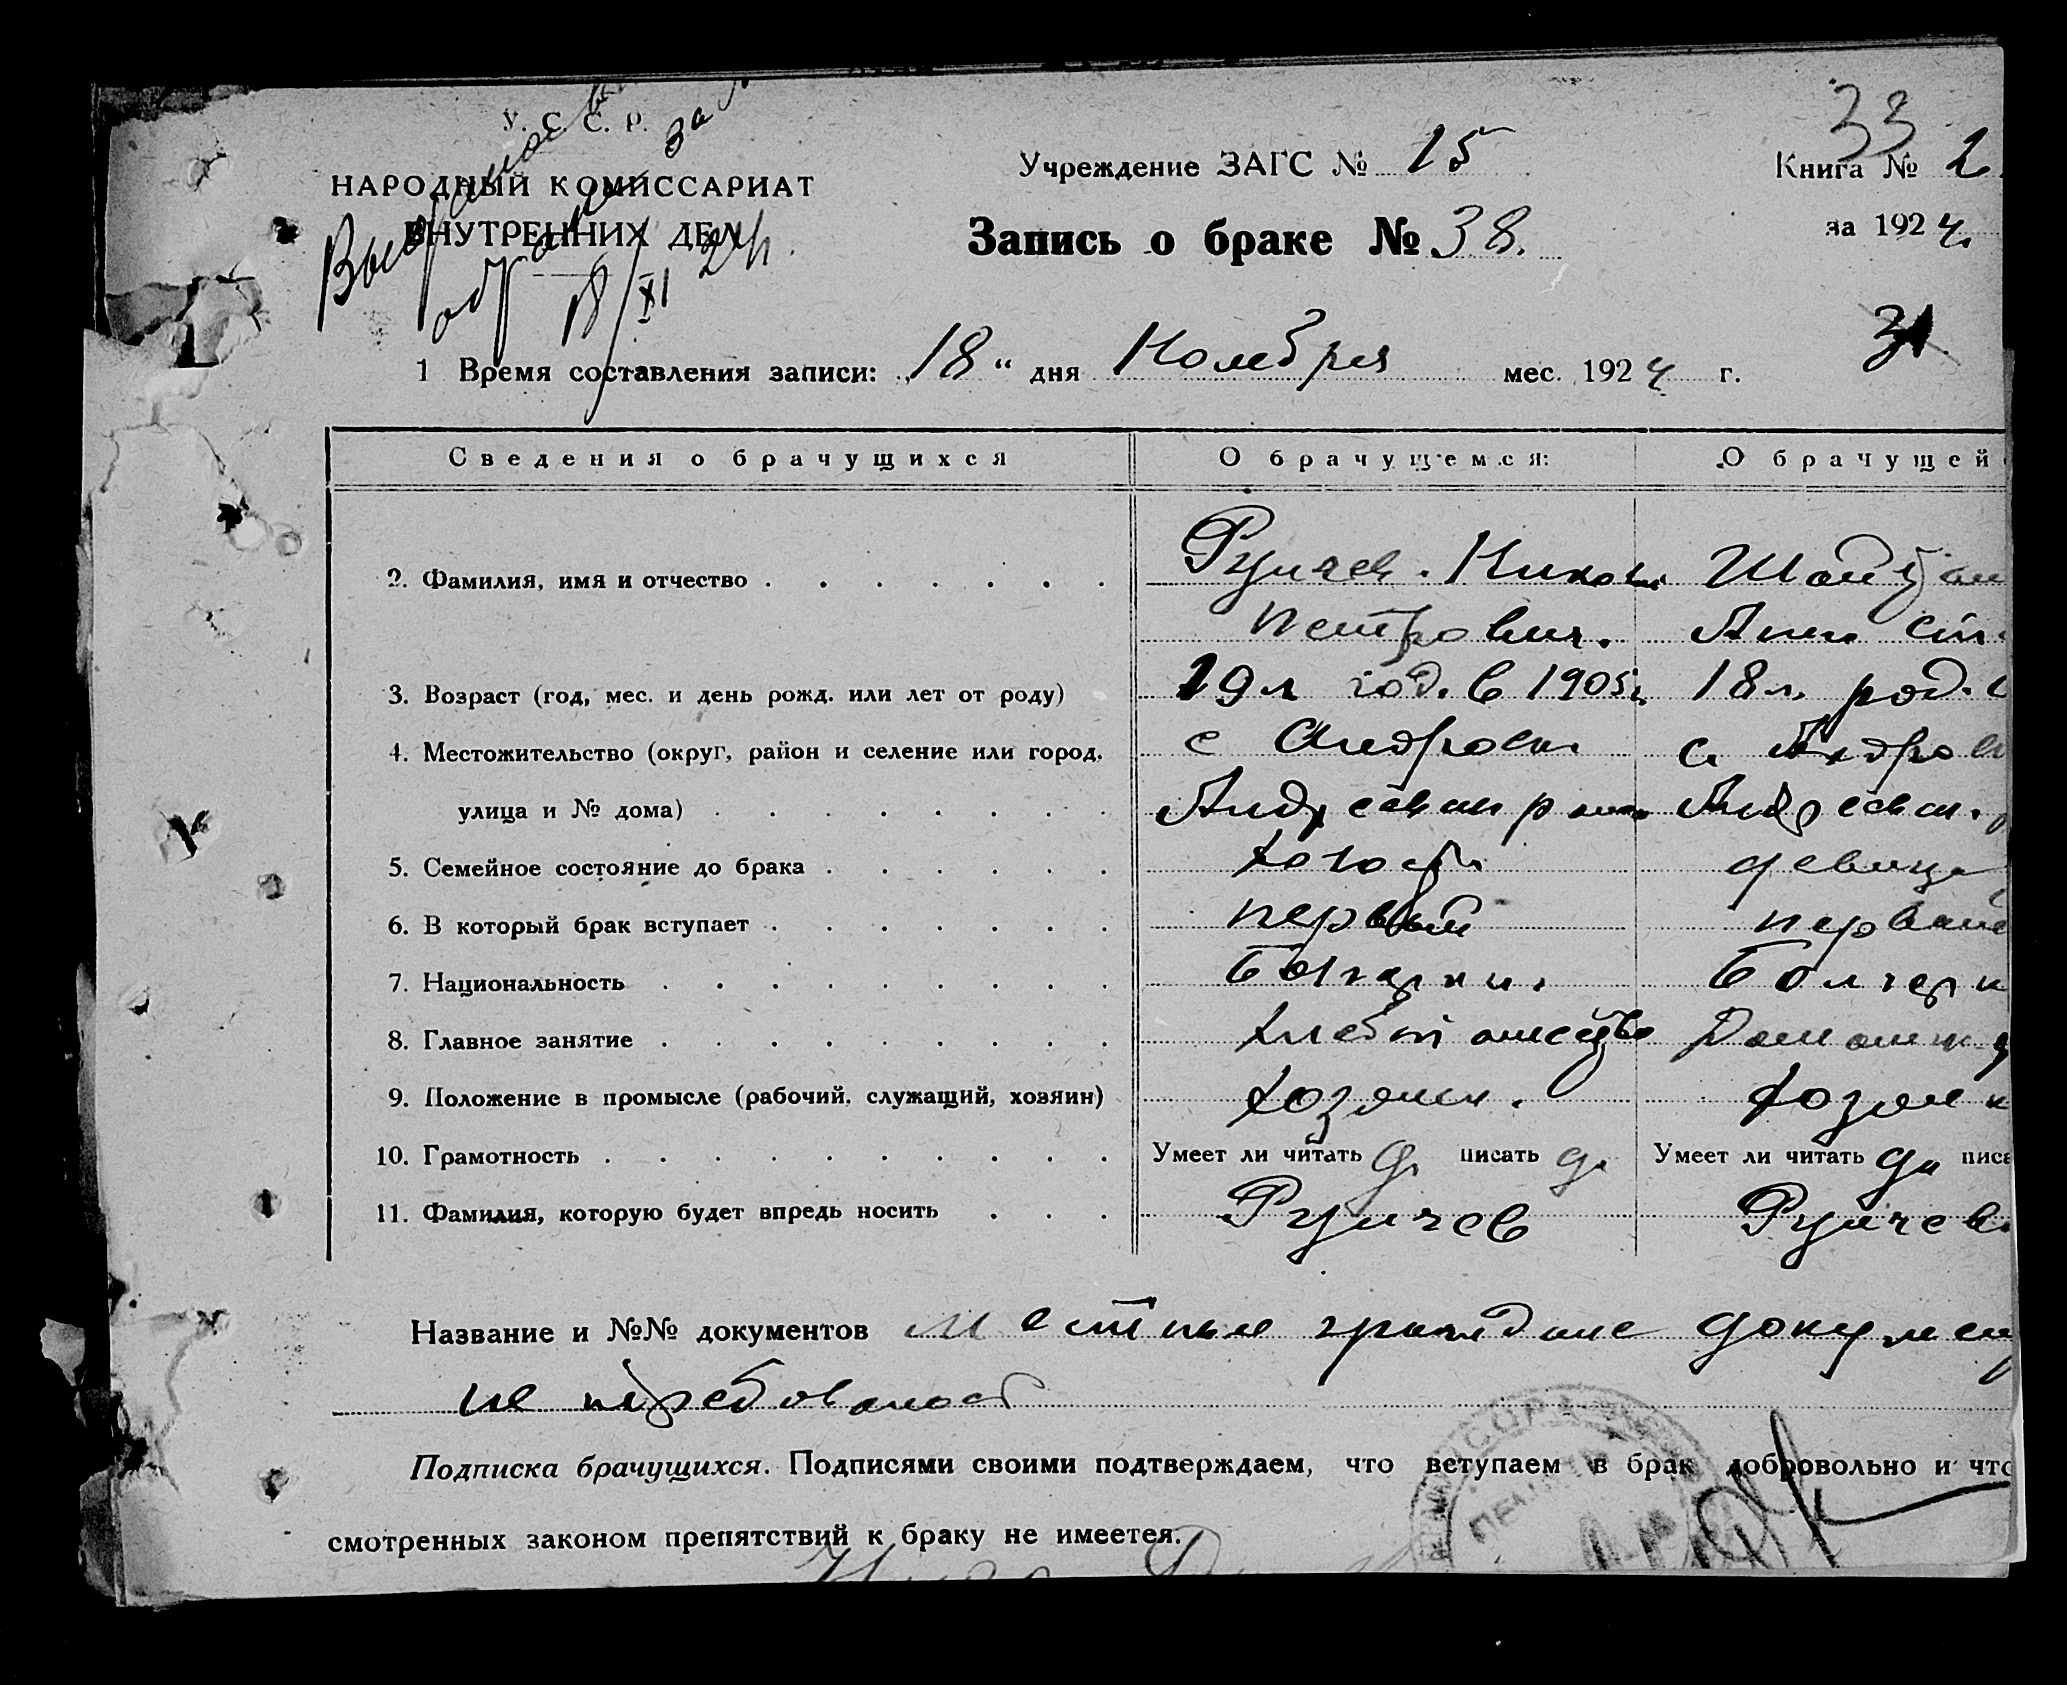 У. С. С. Р.
НАРОДНЫЙ КОМИССАРИАТ
ВНУТРЕННИХ ДЕЛ
18/XI 24
Учреждение ЗАГС № 15
33
Книга № 2
Запись о браке № 38.
за 1924.
31
1 Время составления записи: „18“ дня Ноября мес. 1924 г.
Сведения о брачущихся О брачущемся: О брачущей
2. Фамилия, имя и отчество
Петрович. Анна
3. Возраст (год, мес. и день рожд. или лет от роду) 19л год. в 1905г. 18л. род.
4. Местожительство (округ, район и селение или город, с Андровка с Андров
улица и № дома)
5. Семейное состояние до брака холост девица
6. В который брак вступает первый первый
7. Национальность
8. Главное занятие
9. Положение в промысле (рабочий, служащий, хозяин) хозяин.
10. Грамотность Умеет ли читать да писать да Умеет ли читать да писа
11. Фамилия, которую будет впредь носить Рупчев Рупчев
Название и №№ документов местные граждане докумен
не требовалось
Подписка брачущихся. Подписями своими подтверждаем, что вступаем в брак добровольно и что
смотренных законом препятствий к браку не имеется.